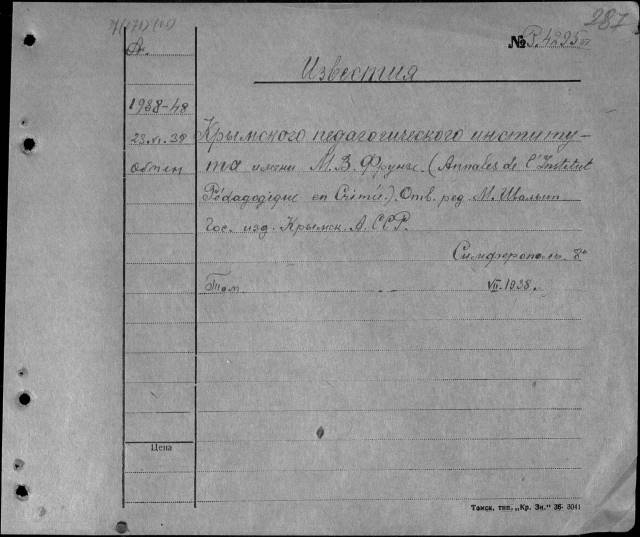 287
А.
№ Р. 4295
Известия
1938-48
23.VI.39
обмен
Крымского педагогического институ-
та имени М. В. Фрунзе. (Annales de l'Institut
Pédagogique en Crimée.) Отв. ред. М.
Гос. изд. Крымск. А. ССР.
Симферополь. 8°
Том VII. 1938.
Цена
Томск, тип. „Кр. Зн.“ 36- 3041